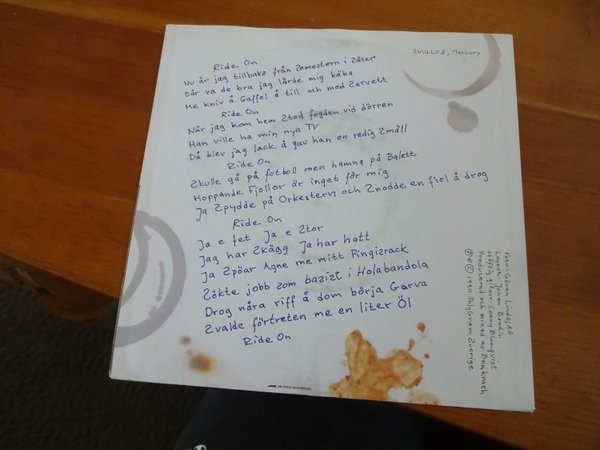 Ride On
ZVULLO 2, Mercury
Nu är jag tillbaks från Zemeztern i Zäter
Där va de bra jag lärde mig käka
Me kniv å Gaffel å till och med Zervett
Ride On
När jag kom hem Ztod fogden vid dörren
Han ville ha min nya TV
Då blev jag lack å gav han en redig Zmäll
Ride On
Zkulle gå på fotboll men hamna på Balett
Hoppande Fjollor är inget för mig
Ja Zpydde på Orkestern och Znodde en fiol å drog
Ride On
Ja e fet Ja e Ztor
Jag har Zkägg Ja har hatt
Ja Zpöar Agne me mitt Pingizrack
Zökte jobb zom bazizt i Holabandola
Drog nåra riff å dom börja Garva
Zvalde förtreten me en liter Öl
Ride On
Foto: Göran Lindesjöö
Layout: Johan Brodin
Häftig gitarr: Conny Blomqvizt
Producerad och mixad av Benkrazh
℗ © 1990 PolyGram Zverige